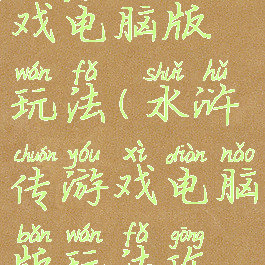 戏电脑版
wán fǎ shuǐ hǔ
玩法(水浒
chuán yóu xì diàn nǎo
传游戏电脑
bǎn wán fǎ gōng
版玩法攻